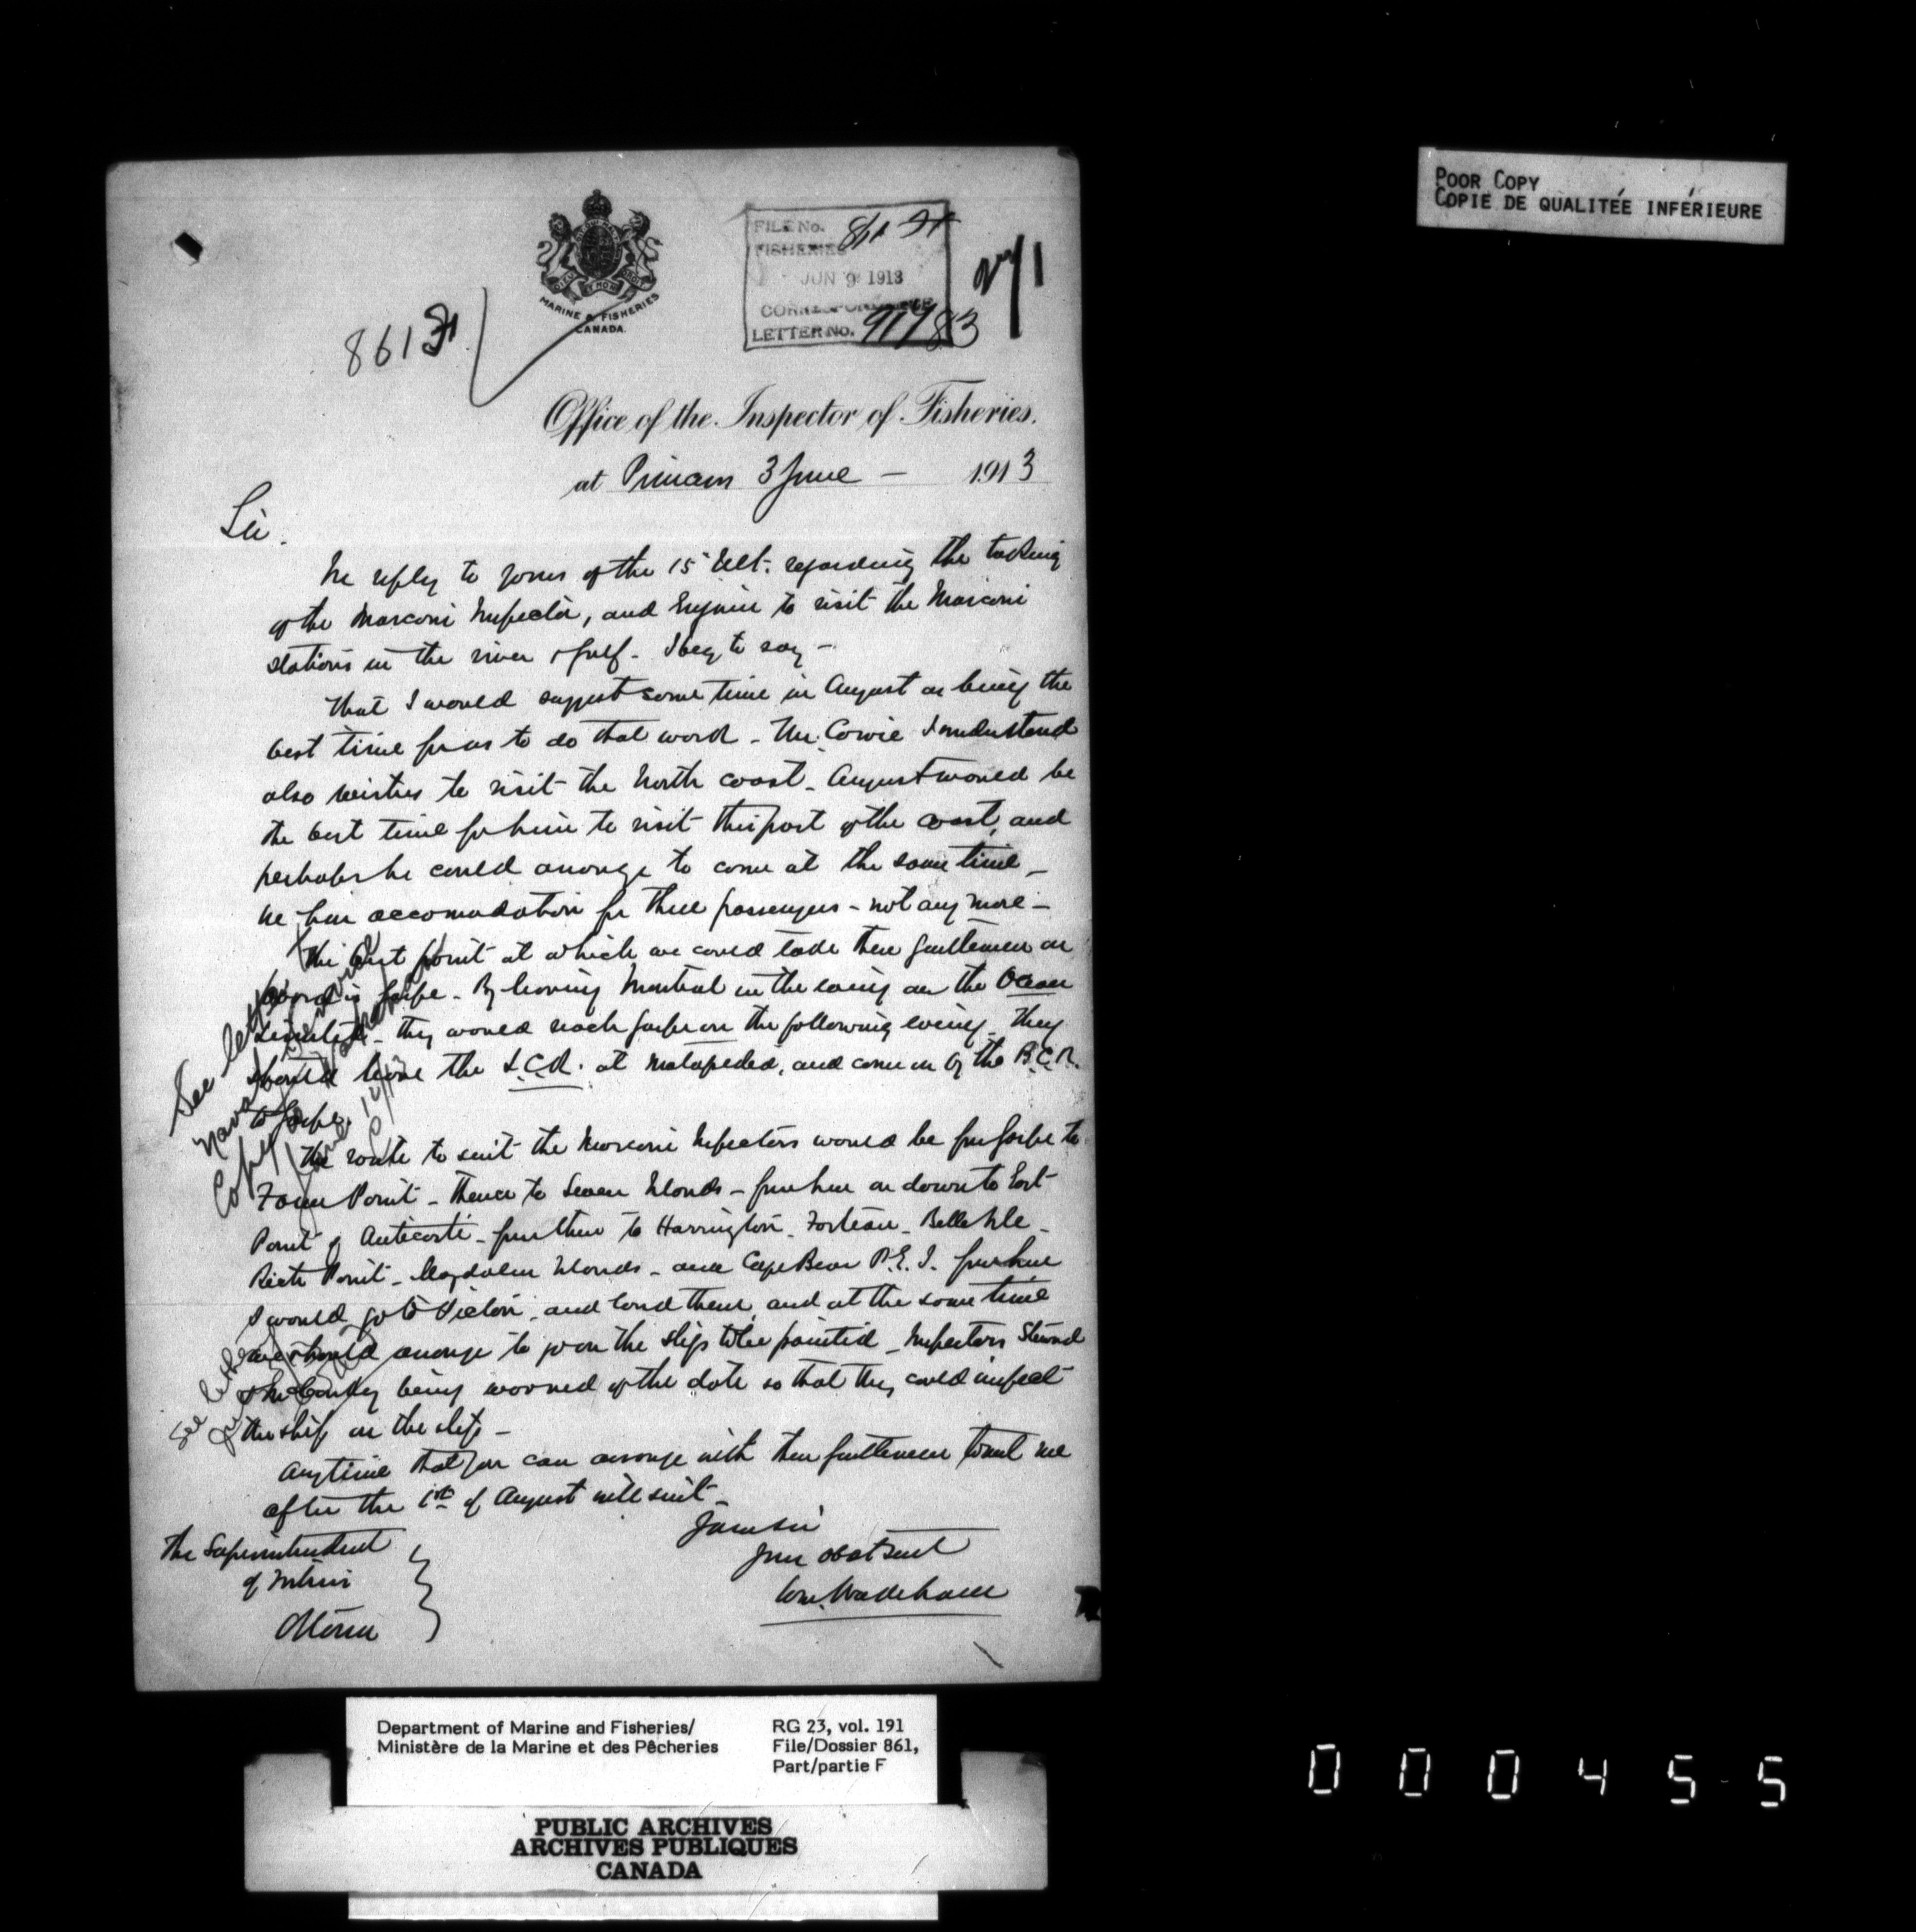 POOR COPY
COPIE DE QUALITÉE INFÉRIEURE
MARINE & FISHERIES
CANADA.
FILE No. 861
FISHERIES
JUN 9 1913
CORRESPONDENCE
LETTER No.
861
Office of the Inspector of Fisheries.
at 3 June – 1913
Sir.
In reply to yours of the 15 Ult. regarding the taking
of the Marconi Inspector, and Engineer to visit the Marconi
stations in the river & gulf. I beg to say –
That I would suggest some time in August as being the
best time for us to do that work – Mr. Cowie I understand
also wishes to visit the North coast – August would be
the best time for him to visit this part of the coast, and
perhaps he could arrange to come at the same time –
We have accomodation for three passengers – not any more –
The best point at which we could take these gentlemen on
board is Gaspe – By leaving Montreal in the evening on the Ocean
Limited – they would reach Gaspe on the following evening – They
should leave the I.C.R. at Matapedia, and come on by the
to Gaspe.
The route to suit the Marconi Inspectors would be from Gaspe to
Fame Point – thence to Seven Islands – from here on down to East
Point of Anticosti – from there to Harrington – Forteau – Belle Isle –
Point – Magdalen Islands – and Cape Bear P.E.I. from here
I would go to Pictou, and land them, and at the same time
we should arrange to go on the slip to be painted – Inspectors
being warned of the date so that they could inspect
the ship on the slip –
Anytime that you can arrange with these gentlemen to meet me
after the 1st of August will suit –
Your obt Servt
Wm. Wakeham
The Superintendent
of Fisheries
Ottawa
See letter
Naval
Copy
See letter
Department of Marine and Fisheries/
Ministère de la Marine et des Pêcheries
RG 23, vol. 191
File/Dossier 861,
Part/partie F
PUBLIC ARCHIVES
ARCHIVES PUBLIQUES
CANADA
000455